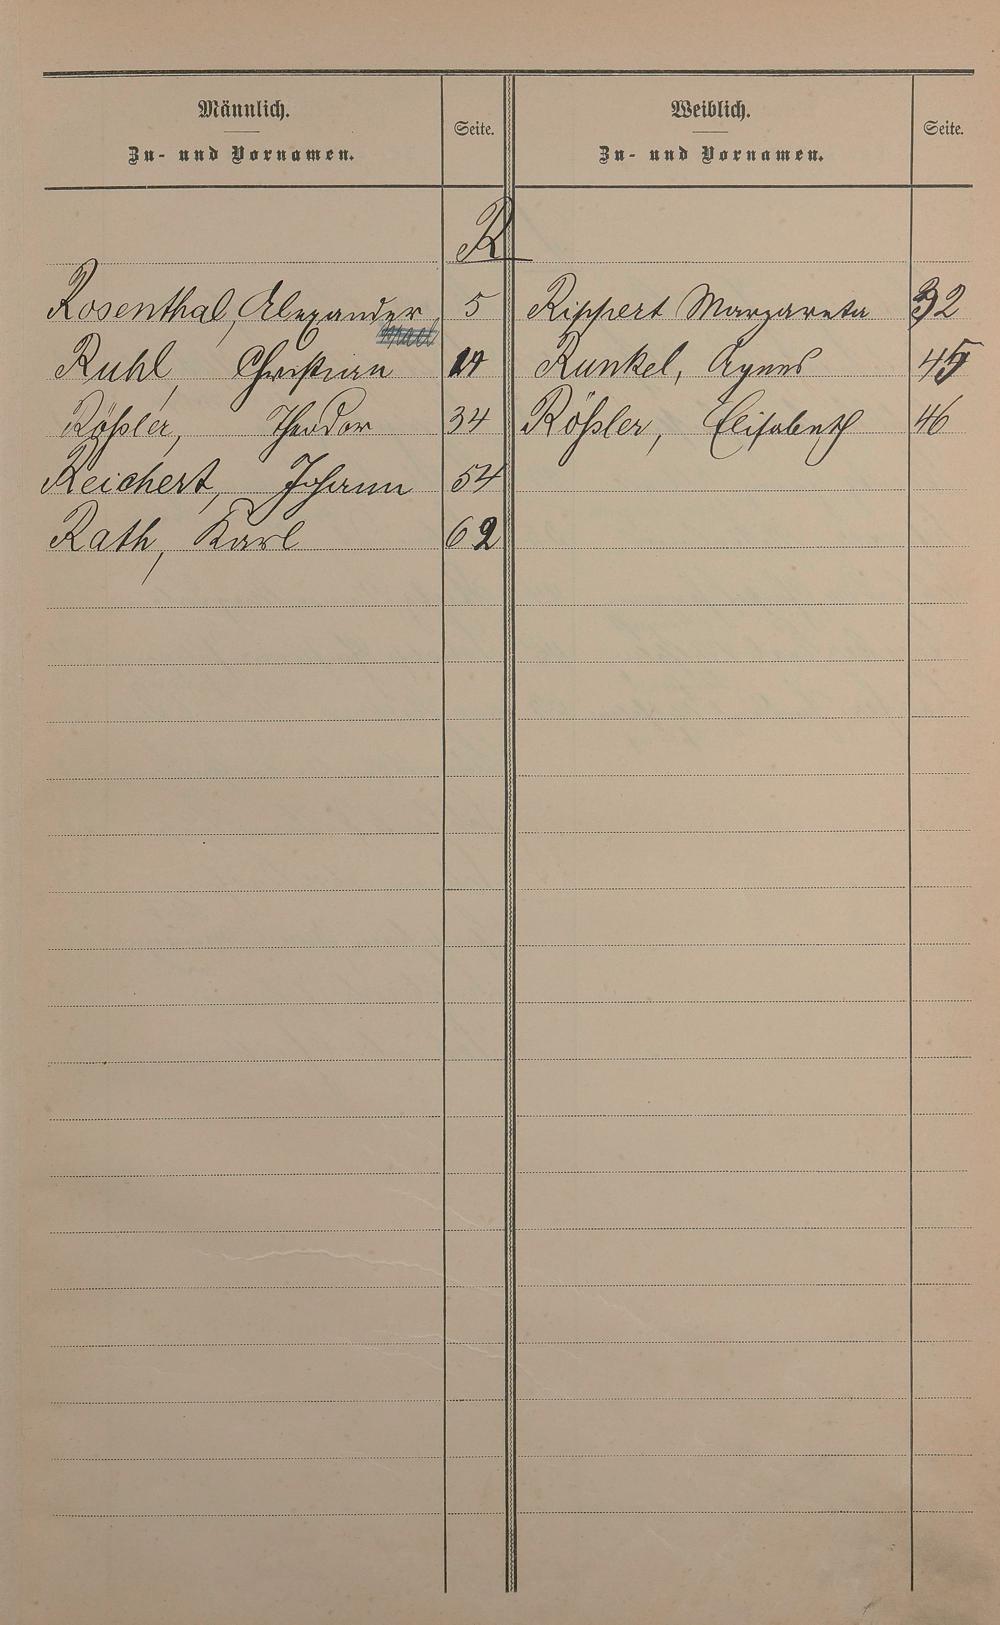 Männlich.
Zu- und Vornamen.
Seite.
Weiblich.
Zu- und Vornamen.
Seite.
R
Rosenthal, Alexander 5 Rippert Margareta 32
Israel
Ruhl, Christian 14 Runkel, Agnes 45
Rößler, Theodor 34 Rößler, Elisabeth 46
Reichert, Johann 54
Rath, Karl 62